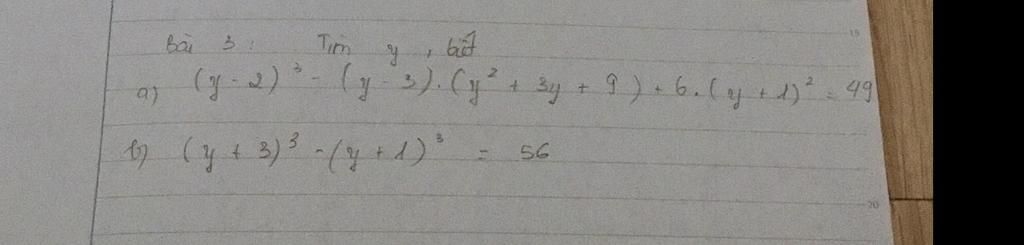 Bài 3: Tìm y, biết
a) (y - 2)³ - (y - 3).(y² + 3y + 9) + 6.(y + 1)² = 49
b) (y + 3)³ - (y + 1)³ = 56
19
20